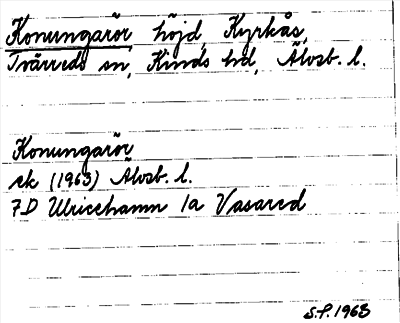 Konungarör höjd, Kyrkås,
Tvärreds sn, Kinds hd, Älvsb. l.
Konungarör
ek (1963) Älvsb. l.
7D Ulricehamn 1a Vasared
S.F. 1963